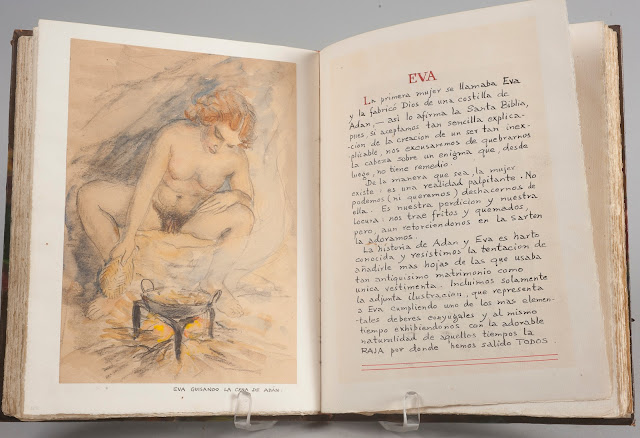 EVA GUISANDO LA CENA DE ADAN.
EVA
La primera mujer se llamaba Eva
y la fabricó Dios de una costilla de
Adan,— asi lo afirma la Santa Biblia,
pues, si aceptamos tan sencilla explica-
-cion de la creacion de un ser tan inex-
plicable, nos excusaremos de quebrarnos
la cabeza sobre un enigma que, desde
luego, no tiene remedio.
De la manera que sea, la mujer
existe: es una realidad palpitante. No
podemos (ni queremos) deshacernos de
ella. Es nuestra perdicion y nuestra
locura: nos trae fritos y quemados,
pero, aun retorciendonos en la sarten
la adoramos.
La historia de Adan y Eva es harto
conocida y resistimos la tentacion de
añadirle mas hojas de las que usaba
tan antiquisimo matrimonio como
unica vestimenta. Incluimos solamente
la adjunta ilustracion, que representa
a Eva cumpliendo uno de los mas elemen-
tales deberes conyugales y al mismo
tiempo exhibiendonos con la adorable
naturalidad de aquellos tiempos la
RAJA por donde hemos salido TODOS.